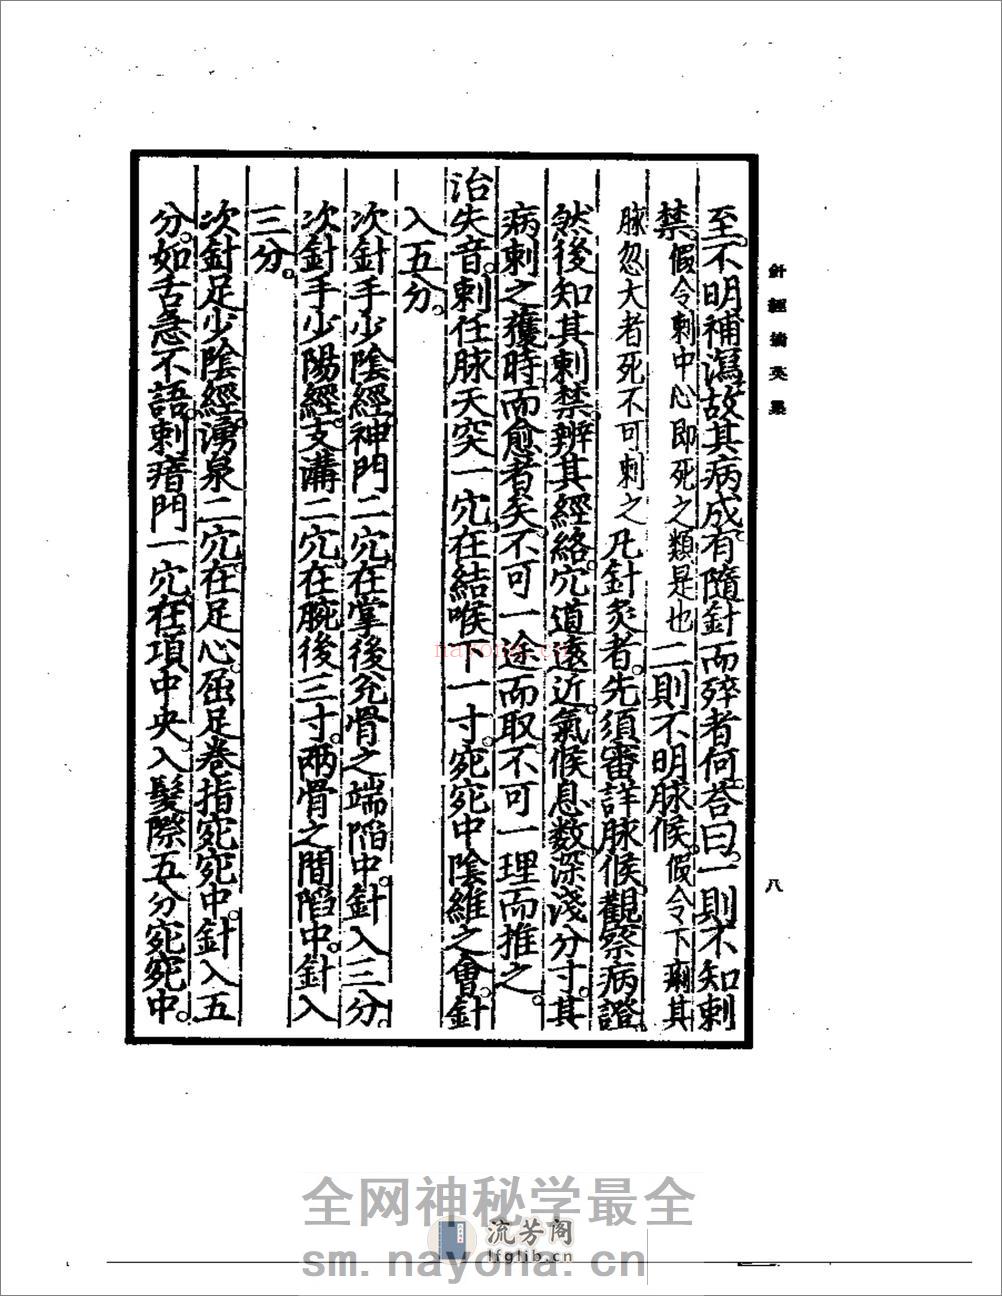 針經摘英集
八
至。不明補瀉。故其病成。有隨針而殞者何。荅曰。一則不知刺
禁。假令刺中心即死之類是也二則不明脉候。假令下痢其
脉忽大者死不可刺之凡針灸者。先須審詳脉候。觀察病證。
然後知其刺禁。辨其經絡。穴道遠近。氣候息数。深淺分寸。其
病刺之獲時而愈者矣。不可一途而取。不可一理而推之。
治失音。刺任脉天突一穴。在結喉下一寸。宛宛中陰維之會。針
入五分。
次針手少陰經神門二穴。在掌後兌骨之端陷中。針入三分。
次針手少陽經。支溝二穴。在腕後三寸。兩骨之間陷中。針入
三分。
次針足少陰經。湧泉二穴。在足心。屈足卷指宛宛中。針入五
分。如舌急不語。刺瘖門一穴。在項中央。入髮際五分宛宛中。
nayona.cn
全网神秘学最全
流芳阁
lfglib.cn
sm.nayona.cn